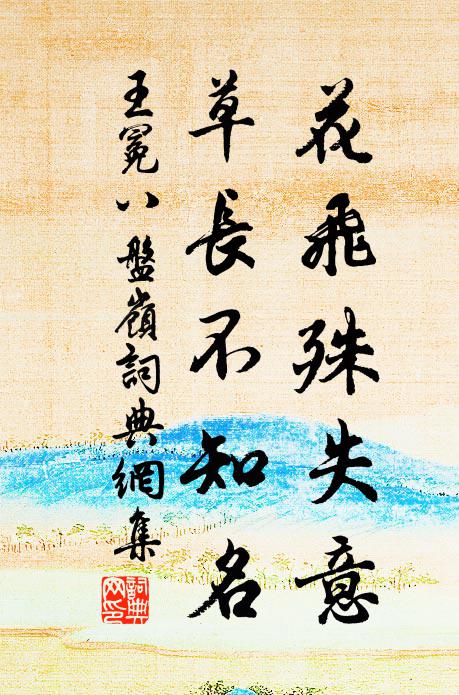 花飛殊失意
草長不知名
王冕八盤嶺詞典網集
詞典